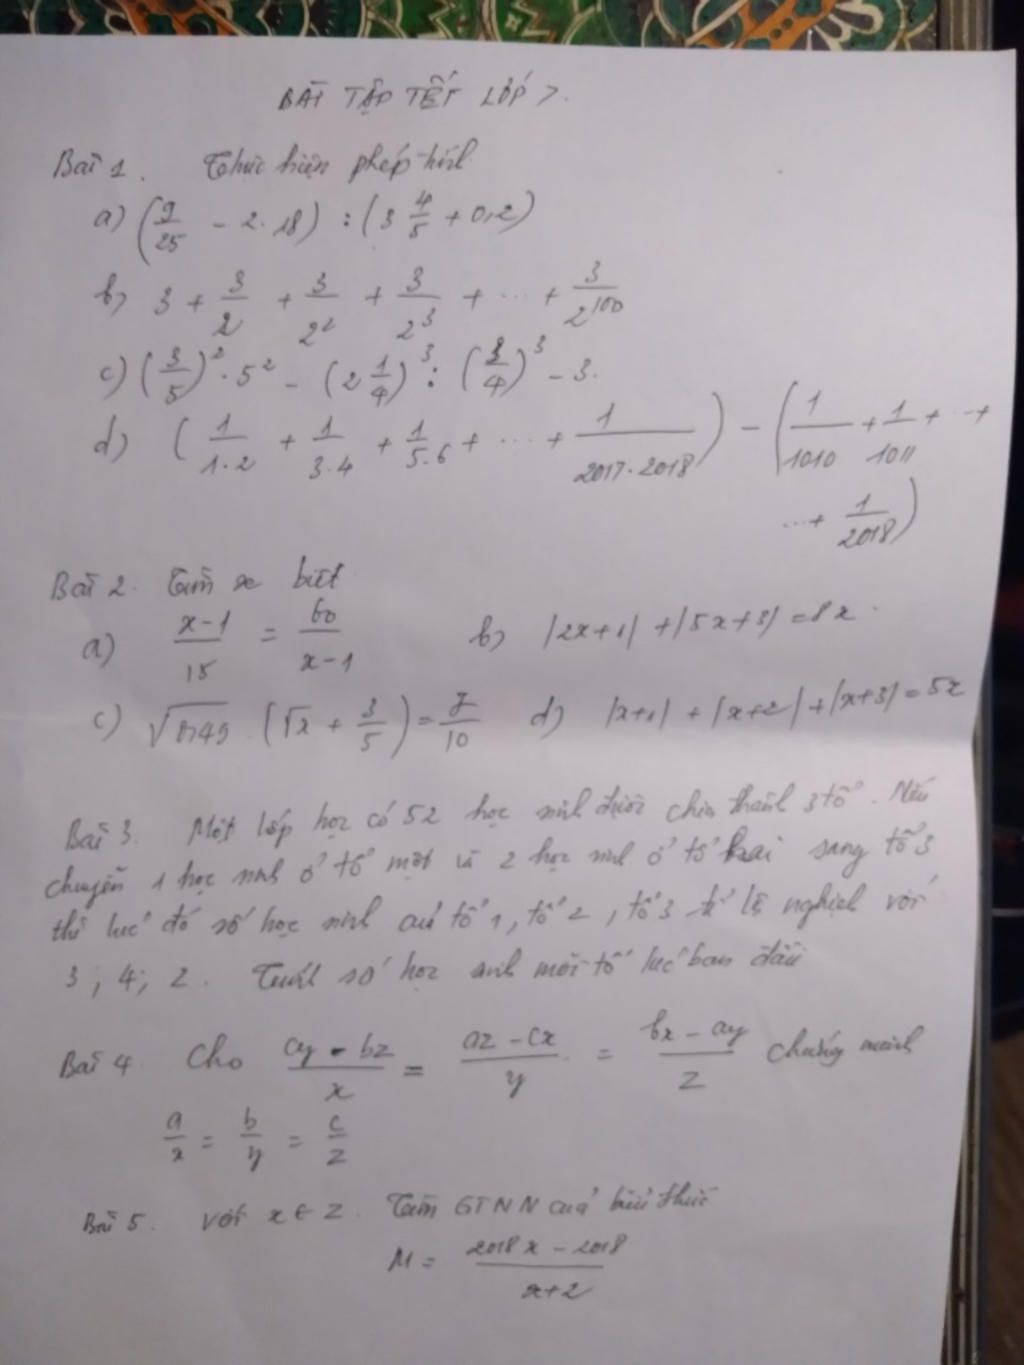 BÀI TẬP TẾT LỚP 7.
Bài 1. Thực hiện phép tính
a) (9/25 - 2.18) : (3 4/5 + 0,2)
b) 3 + 3/2 + 3/2^2 + 3/2^3 + ... + 3/2^100
c) (3/5)^2 . 5^2 - (2 1/4)^3 : (3/4)^3 - 3.
d) (1/1.2 + 1/3.4 + 1/5.6 + ... + 1/2017.2018) - (1/1010 + 1/1011 + ... +
... + 1/2018)
Bài 2. Tìm x biết
a) x-1/15 = 60/x-1 b) |2x+1| + |5x+3| = 8x.
c) √0,49 . (√x + 3/5) = 7/10 d) |x+1| + |x+2| + |x+3| = 5x
Bài 3. Một lớp học có 52 học sinh được chia thành 3 tổ. Nếu
chuyển 1 học sinh ở tổ một và 2 học sinh ở tổ hai sang tổ 3
thì lúc đó số học sinh của tổ 1, tổ 2, tổ 3 tỉ lệ nghịch với
3; 4; 2. Tính số học sinh mỗi tổ lúc ban đầu
Bài 4. Cho cy - bz/x = az - cx/y = bx - ay/z chứng minh
a/x = b/y = c/z
Bài 5. Với x ∈ Z. Tìm GTNN của biểu thức
M = 2018x - 2018/x+2